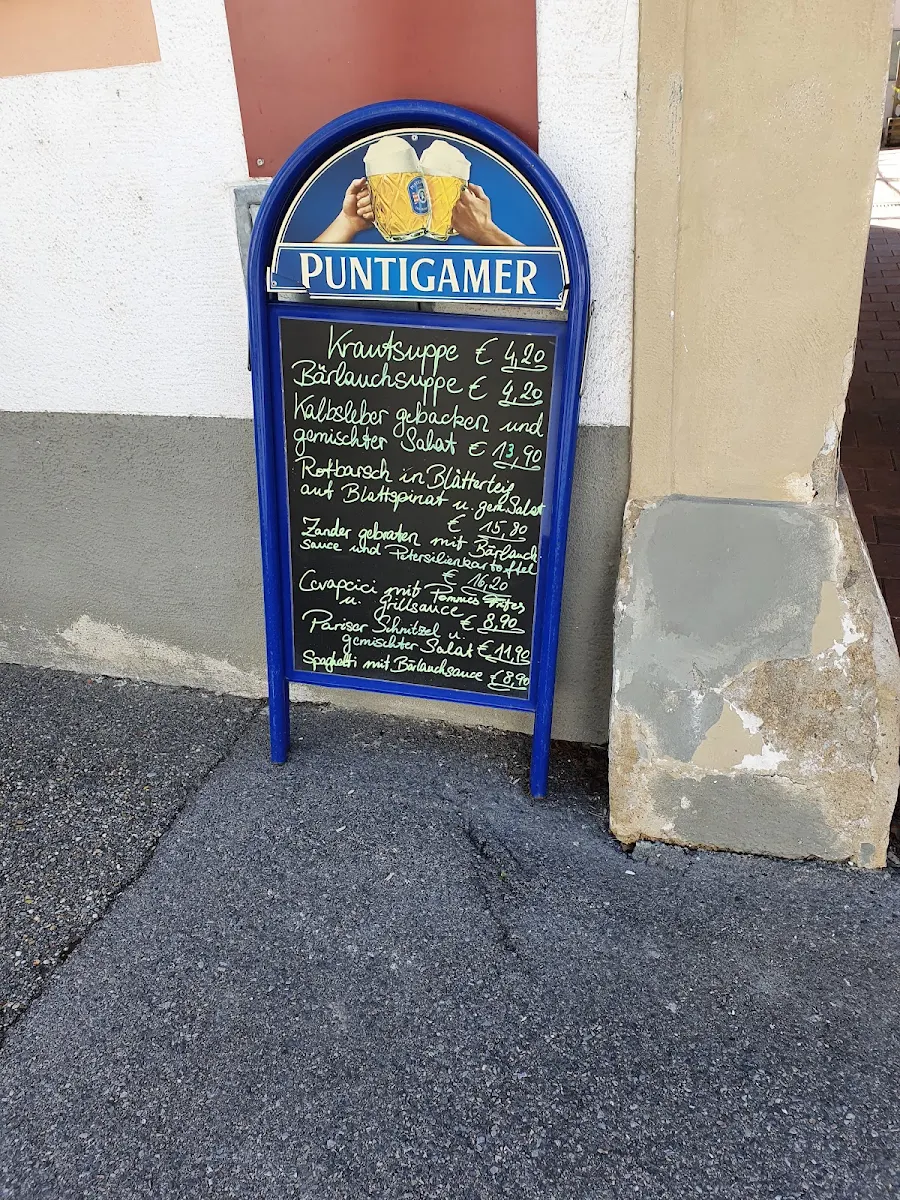 PUNTIGAMER
Krautsuppe € 4,20
Bärlauchsuppe € 4,20
Kalbsleber gebacken und
gemischter Salat € 13,90
Rotbarsch in Blätterteig
auf Blattspinat u. gem. Salat
€ 15,80
Zander gebraten mit Bärlauch-
sauce und Petersilienkartoffel
€ 16,20
Cevapcici mit Pommes Frites
u. Grillsauce € 8,90
Pariser Schnitzel u.
gemischter Salat € 11,90
Spaghetti mit Bärlauchsauce € 8,90